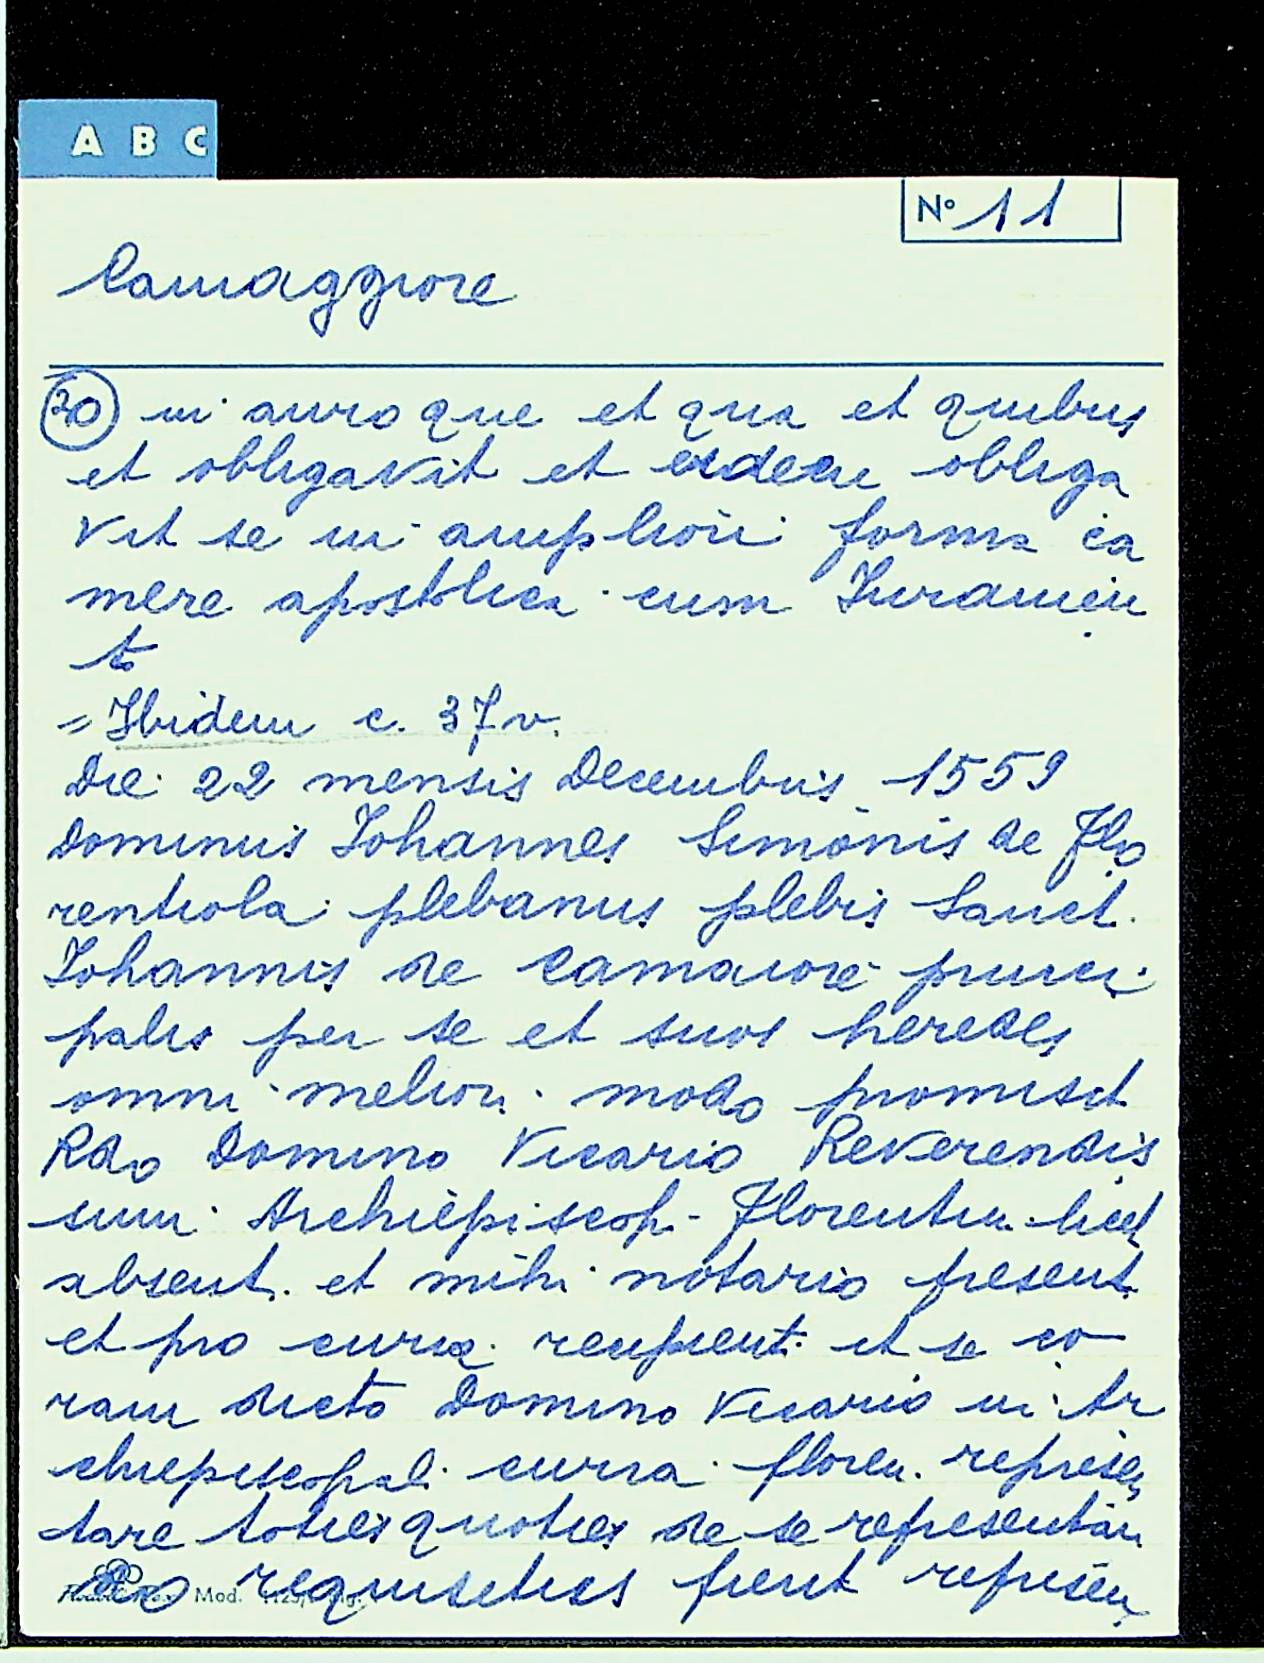 A B C
Nº 11
Camaggiore
20 in auro que et qua et quibus
et obligavit et eidem obliga
vit se in ampliori forma ca
mere apostolica cum Iuramen
to
= Ibidem c. 37 v.
Die 22 mensis Decembris 1559
Dominus Iohannes Simonis de Flo
rentiola plebanus plebis Sanct.
Iohannis de Camaiore princi
palis per se et suos heredes
omni meliori modo promisit
Rdo Domino Vicario Reverendis
simi Archiepiscop. Florentin. licet
absent. et mihi notario present
et pro curia recipient. et se co
ram dicto Domino Vicario in Ar
chiepiscopal. curia floren. represen
tare toties quoties de se representan
do requisitus fierit represen
Mod.